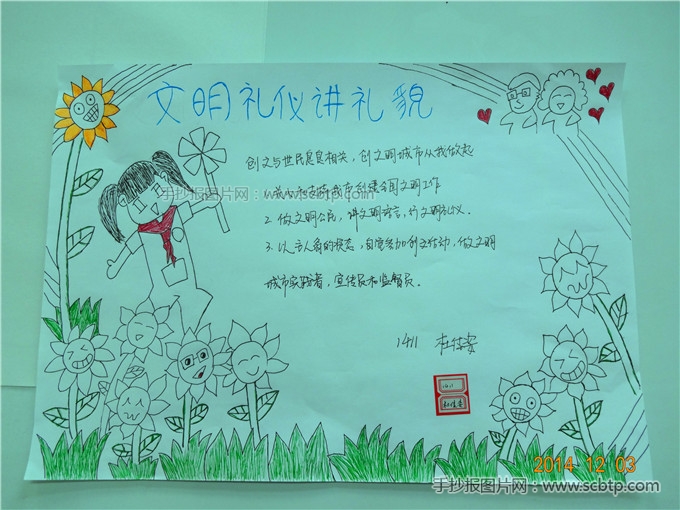 文明礼仪讲礼貌
创文与世民息息相关，创文明城市从我做起
城市创建全国文明工作
2. 做文明公民，讲文明语言，行文明礼仪。
3. 以主人翁的状态，自觉参加创文活动，做文明
城市实践者，宣传员和监督员。
1411
1411
手抄报图片网：www.scbtp.com
2014 12 03
手抄报图片网：www.scbtp.com